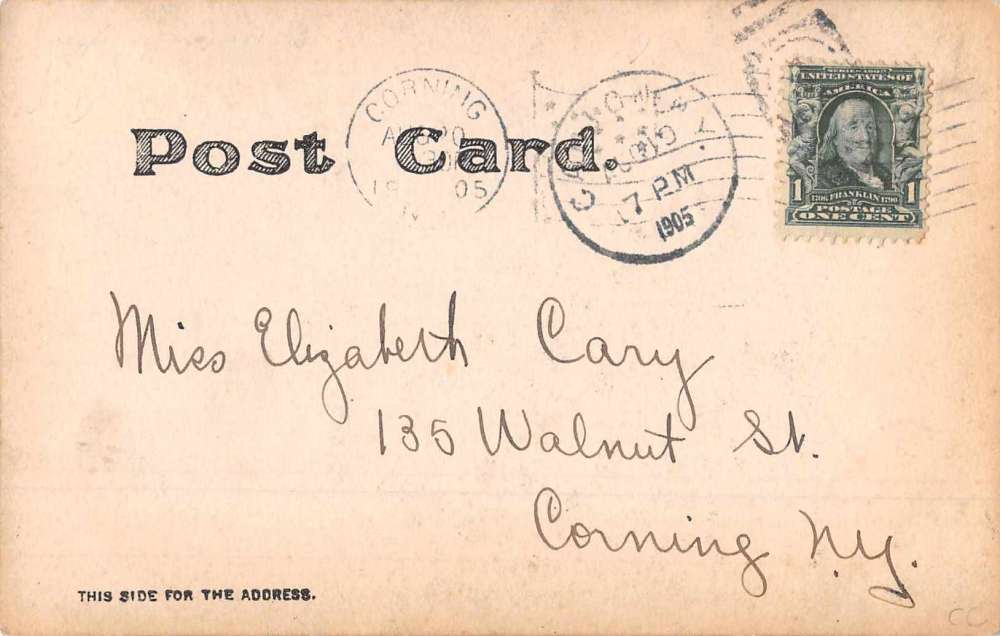 Post Card.
CORNING
AUG 20
1905
N
7 PM
1905
SERIES 1902
UNITED STATES OF
AMERICA
1 1706 FRANKLIN 1790 1
POSTAGE
ONE CENT
Miss Elizabeth Cary
135 Walnut St.
Corning N.Y.
THIS SIDE FOR THE ADDRESS.
CC